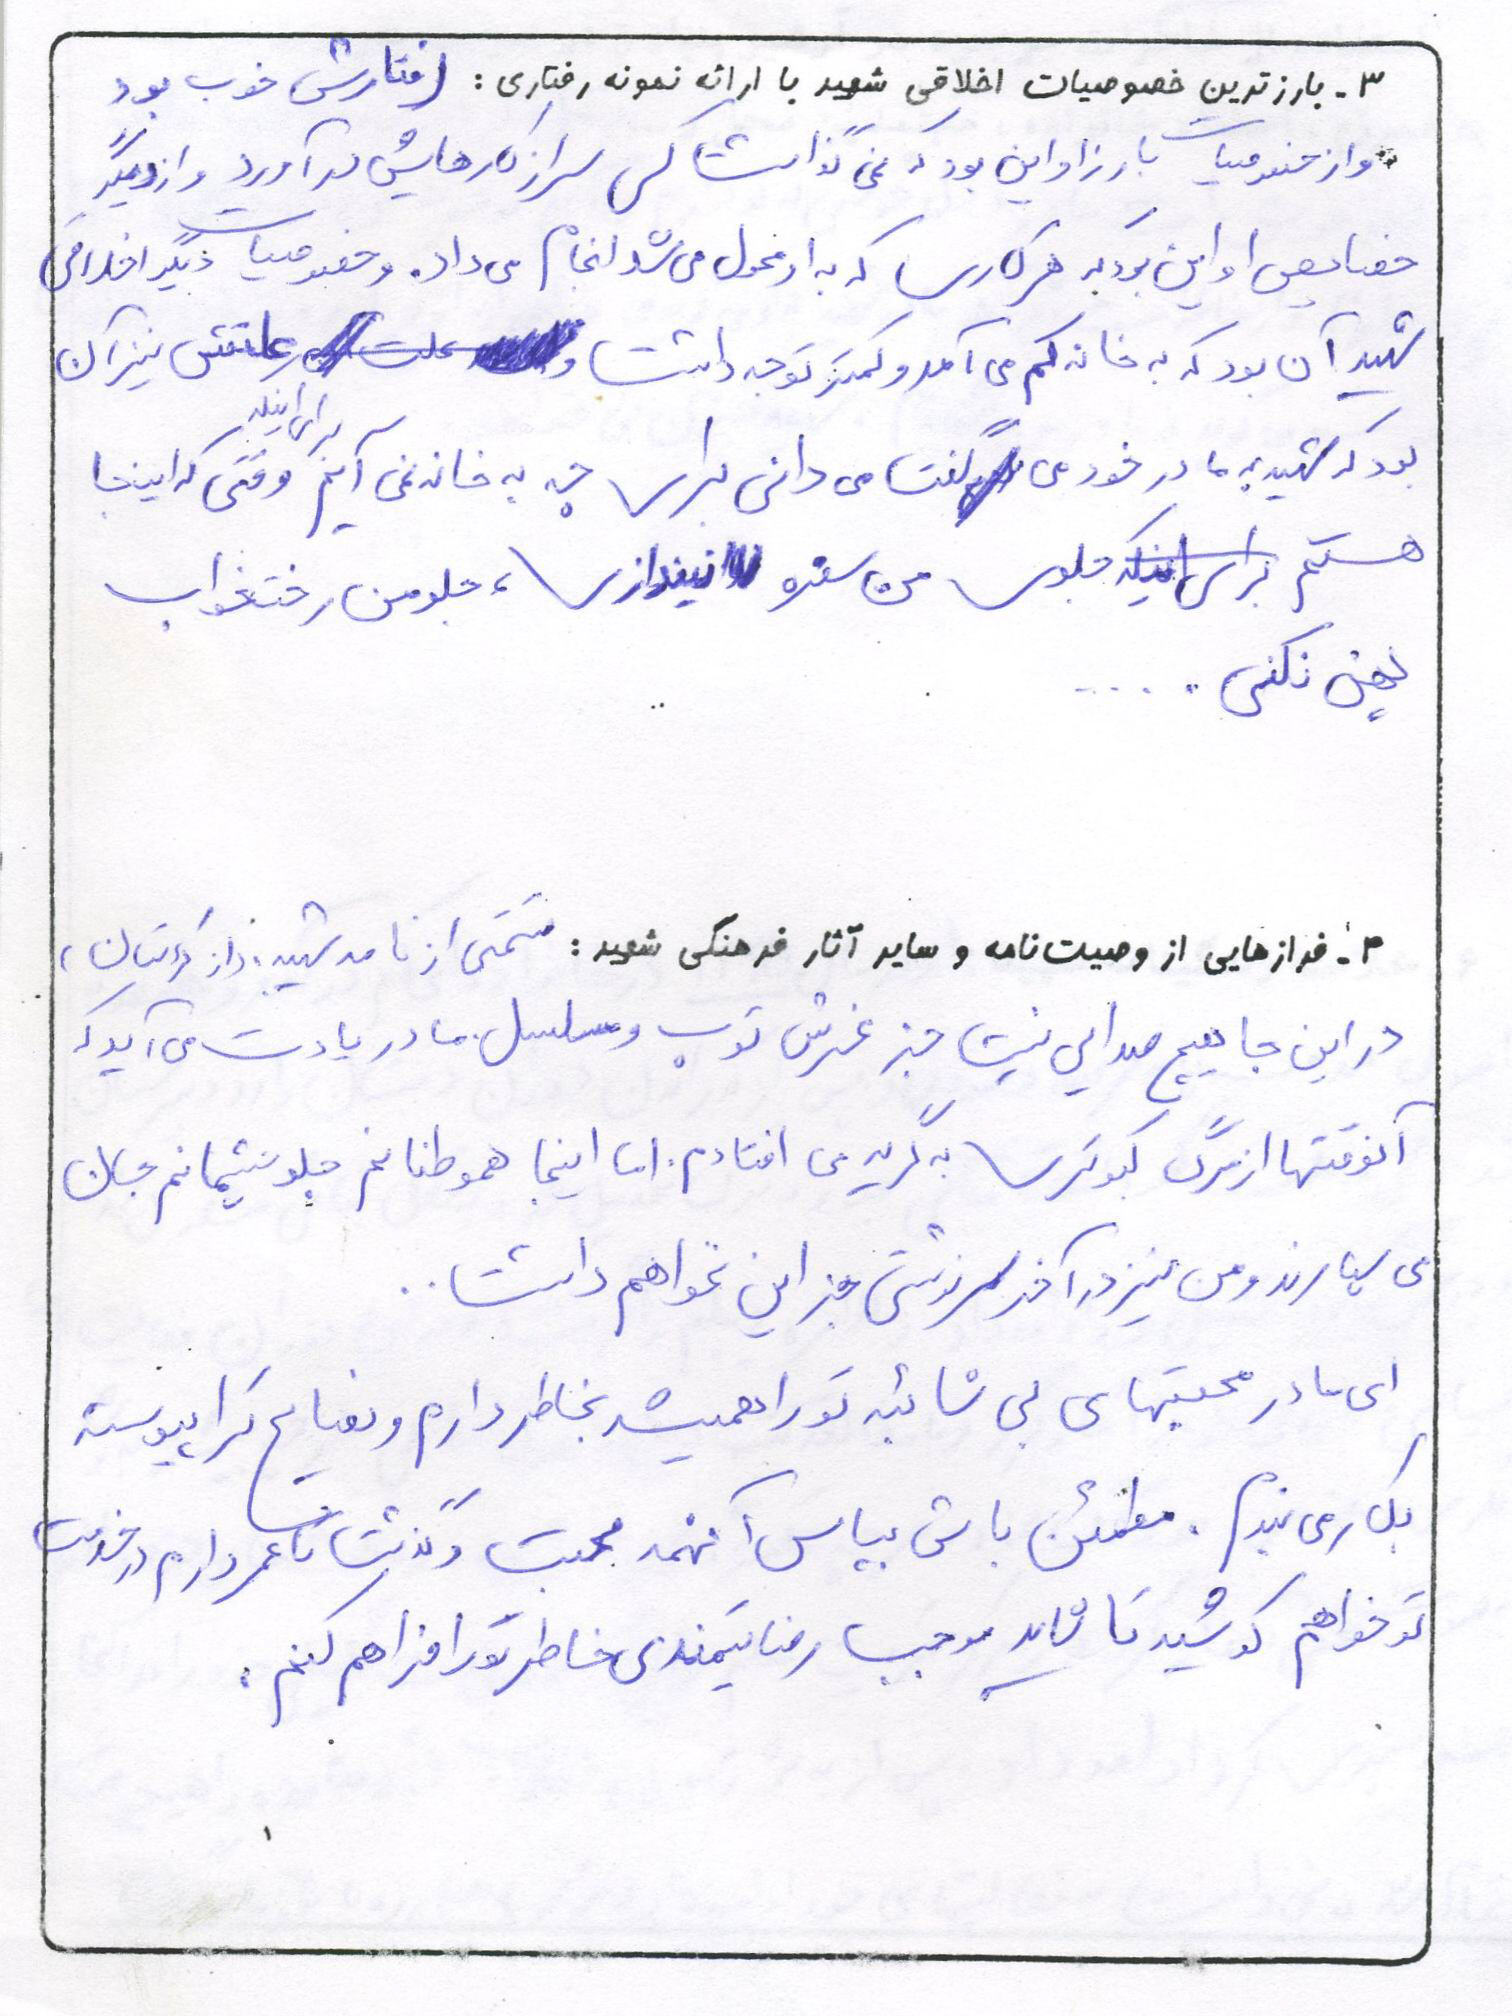 ۳- بارزترین خصوصیات اخلاقی شهید با ارائه نمونه رفتاری: رفتارش خوب بود
و از خصوصیات بارز او این بود که نمی گذاشت کسی سر از کارهایش درآورد و از دیگر
خصایص او این بود که هر کاری که به او محول می شد انجام می داد. و خصوصیات دیگر اخلاقی
شهید آن بود که به خانه کم می آمد و کمتر توجه داشت و علتش نیز آن
بود که شهید به مادر خود می گفت می دانی برای چه به خانه نمی آیم برای اینکه وقتی که اینجا
هستم برای اینکه جلوی من سفره نیندازی، جلو من رختخواب
پهن نکنی . ....
۴- فرازهایی از وصیت‌نامه و سایر آثار فرهنگی شهید: قسمتی از نامه شهید: از کردستان،
در این جا هیچ صدایی نیست جز غرش توپ و مسلسل. مادر یادت می آید که
آنوقتها از مرگ کبوتری به گریه می افتادم. اما اینجا هموطنانم جلو چشمانم جان
می سپارند و من نیز در آخر سرنوشتی جز این نخواهم داشت..
ای مادر محبتهای بی شائبه تو را همیشه بخاطر دارم و نصایح ترا پیوسته
بکار می بندم. مطمئن باش بپاس آنهمه محبت و گذشت تا عمر دارم در خدمت
تو خواهم کوشید تا شاید موجب رضایتمندی خاطر تو را فراهم کنم.